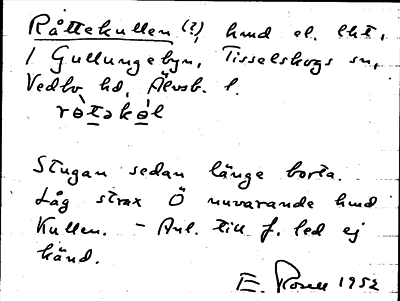 Råttekullen (?), hmd el. lht,
i Gullungebyn, Tisselskogs sn,
Vedbo hd, Älvsb. l.
ròtəkól
Stugan sedan länge borta.
Låg strax Ö nuvarande hmd
Kullen. – Anl. till f. led ej
känd.
E. 1952